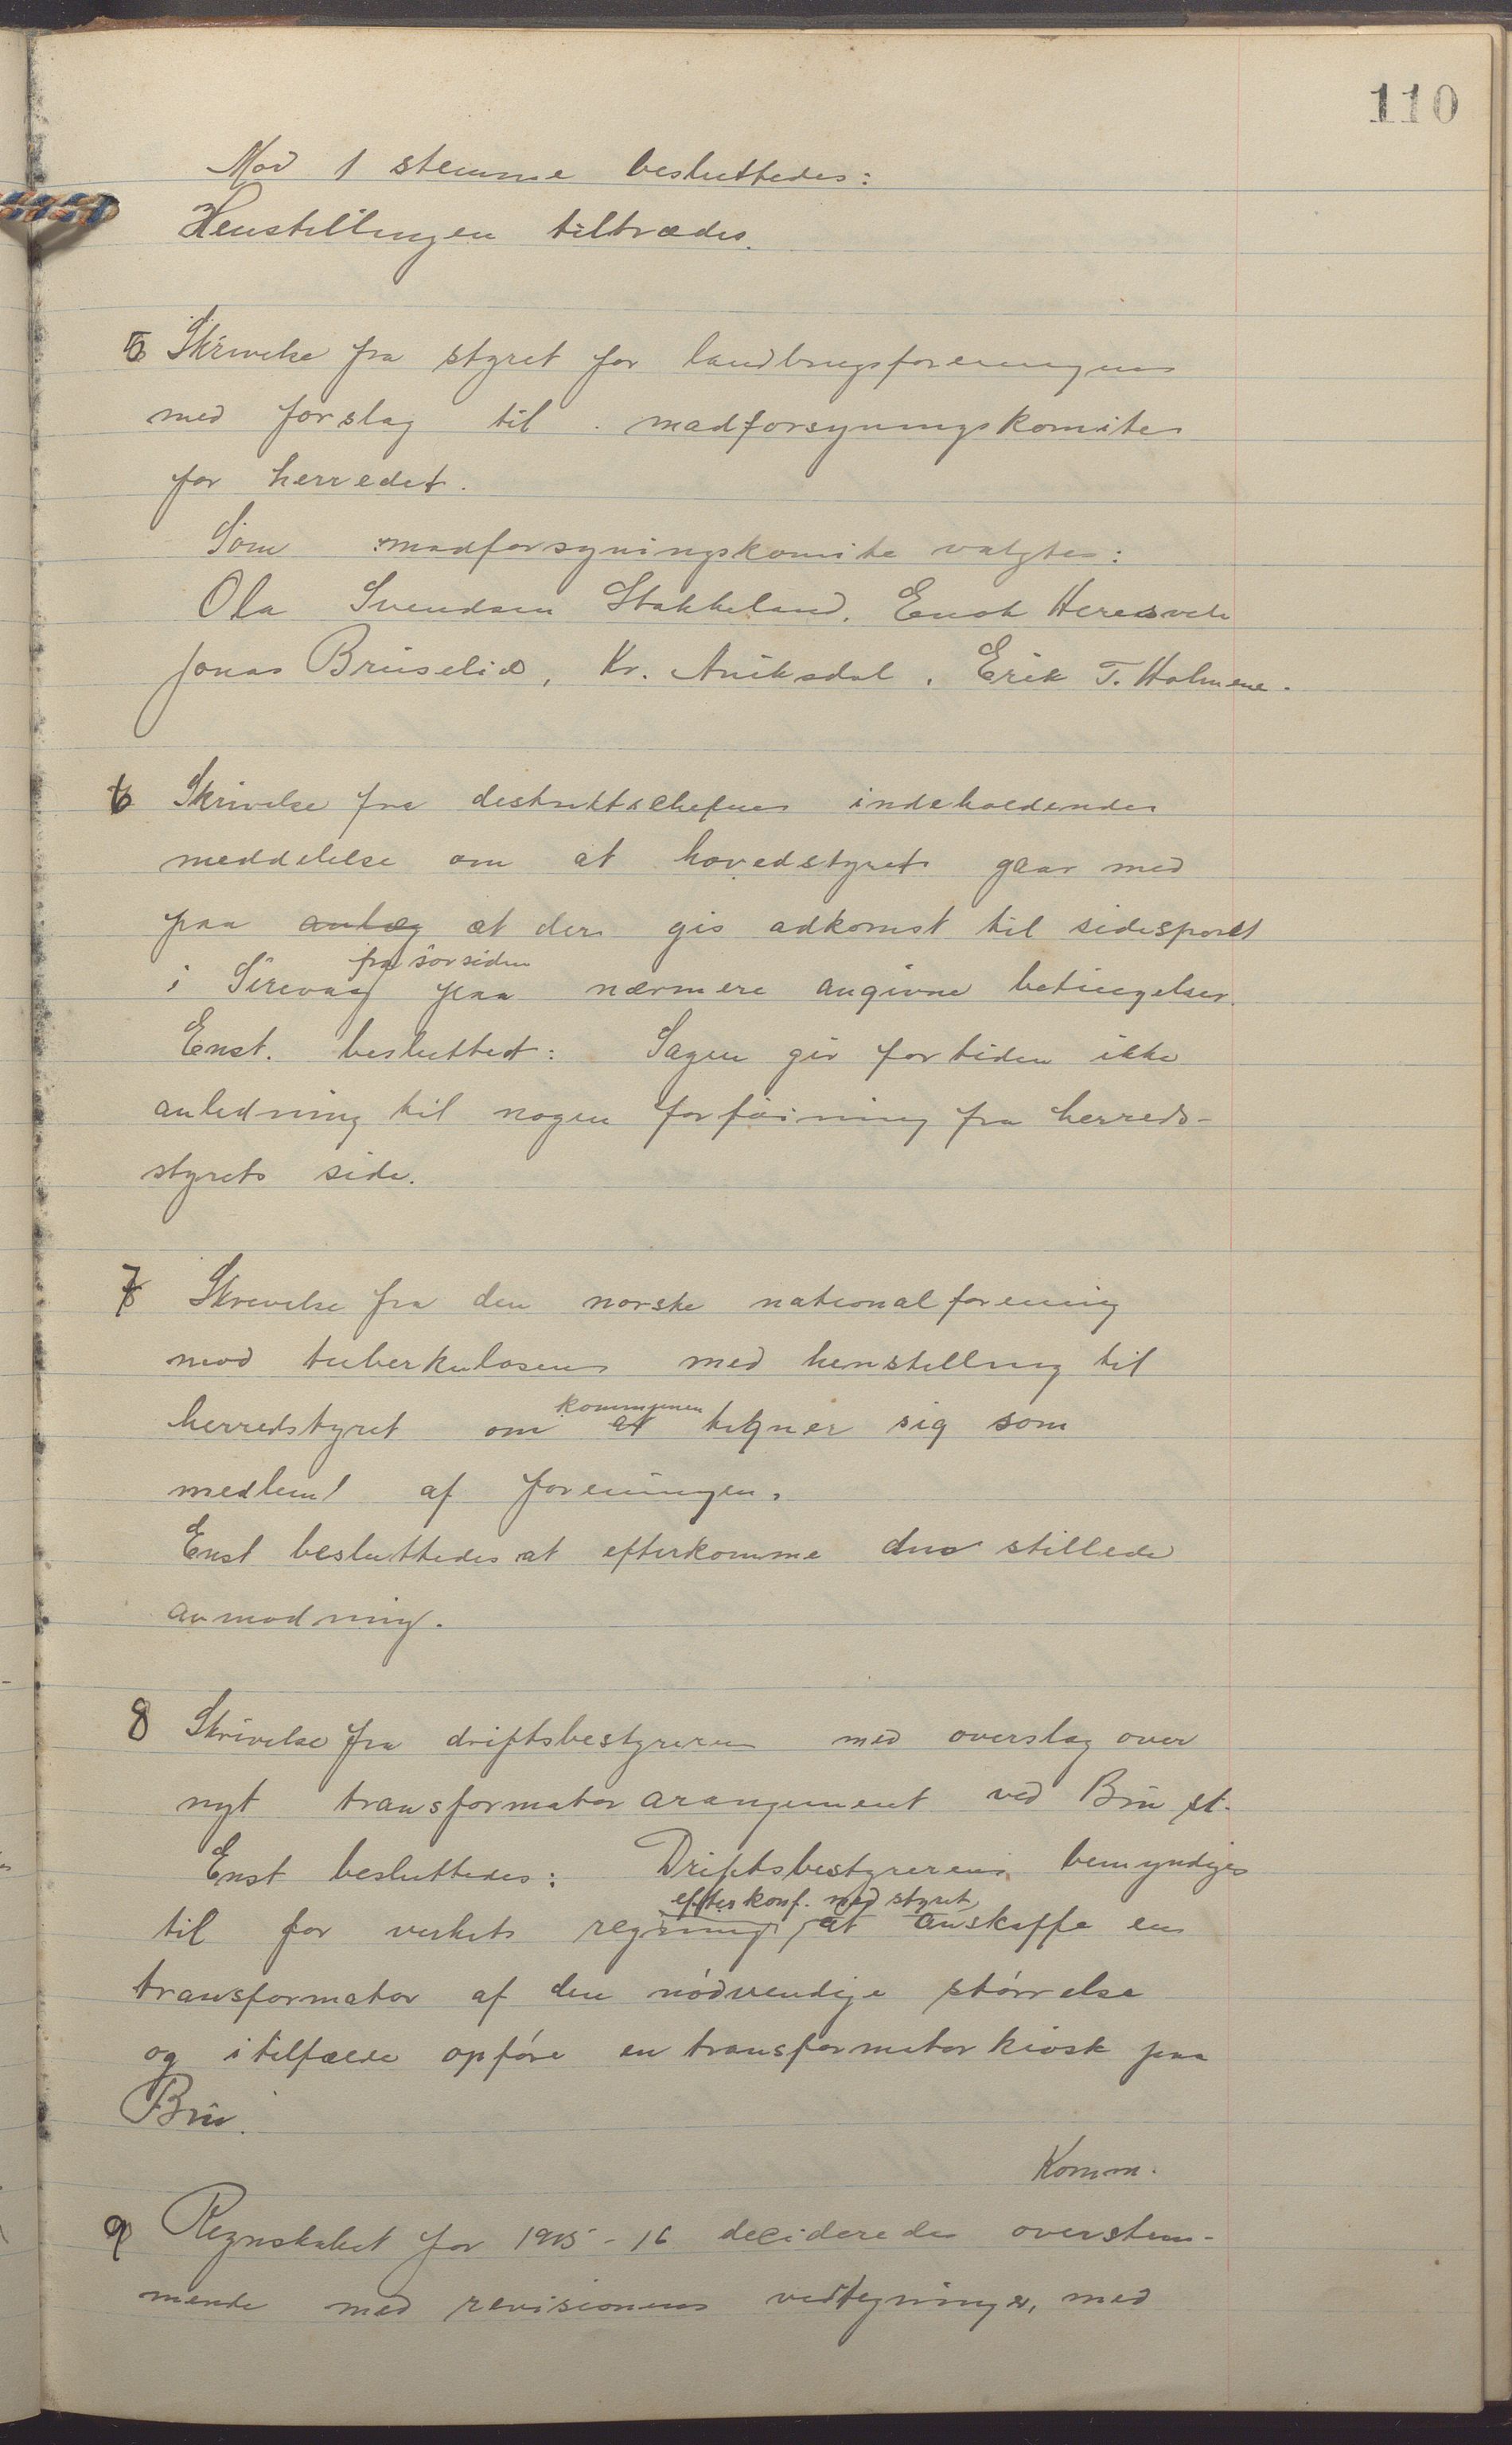 110
Mod 1 stemme besluttedes:
Henstillingen tiltrædes.
5 Skrivelse fra styret for landbrugsforeningen
med forslag til madforsyningskomite
for herredet.
Som madforsyningskomite valgtes:
Ola Svendsen Stokkeland, Enok Heresvela
Jonas Bruselid, Kr. Aniksdal, Erik T. Holmene.
6 Skrivelse fra destriktschefen indeholdende
meddelelse om at hovedstyret gaar med
paa anlæg at der gis adkomst til sidesporet
fra sörsiden
i Sirevaag paa nærmere angivne betingelser.
Enst. besluttet: Sagen gir for tiden ikke
anledning til nogen forföining fra herreds-
styrets side.
7 Skrivelse fra den norske nationalforening
mod tuberkulosen med henstilling til
kommunen
herredstyret om at tegner sig som
medlem af foreningen.
Enst besluttedes at efterkomme den stillede
anmodning.
8 Skrivelse fra driftsbestyreren med overslag over
nyt transformator arangement ved Bru st.
Enst besluttedes: Driftsbestyreren bemyndiges
efter konf. med styret
til for verkets regning at anskaffe en
transformator af den nódvendige stórrelse
og i tilfælde opfóre en transformatorkiosk paa
Bru.
Komm.
9 Regnskabet for 1915-16 decideredes overstem-
mende med revisionens vedtegninger, med